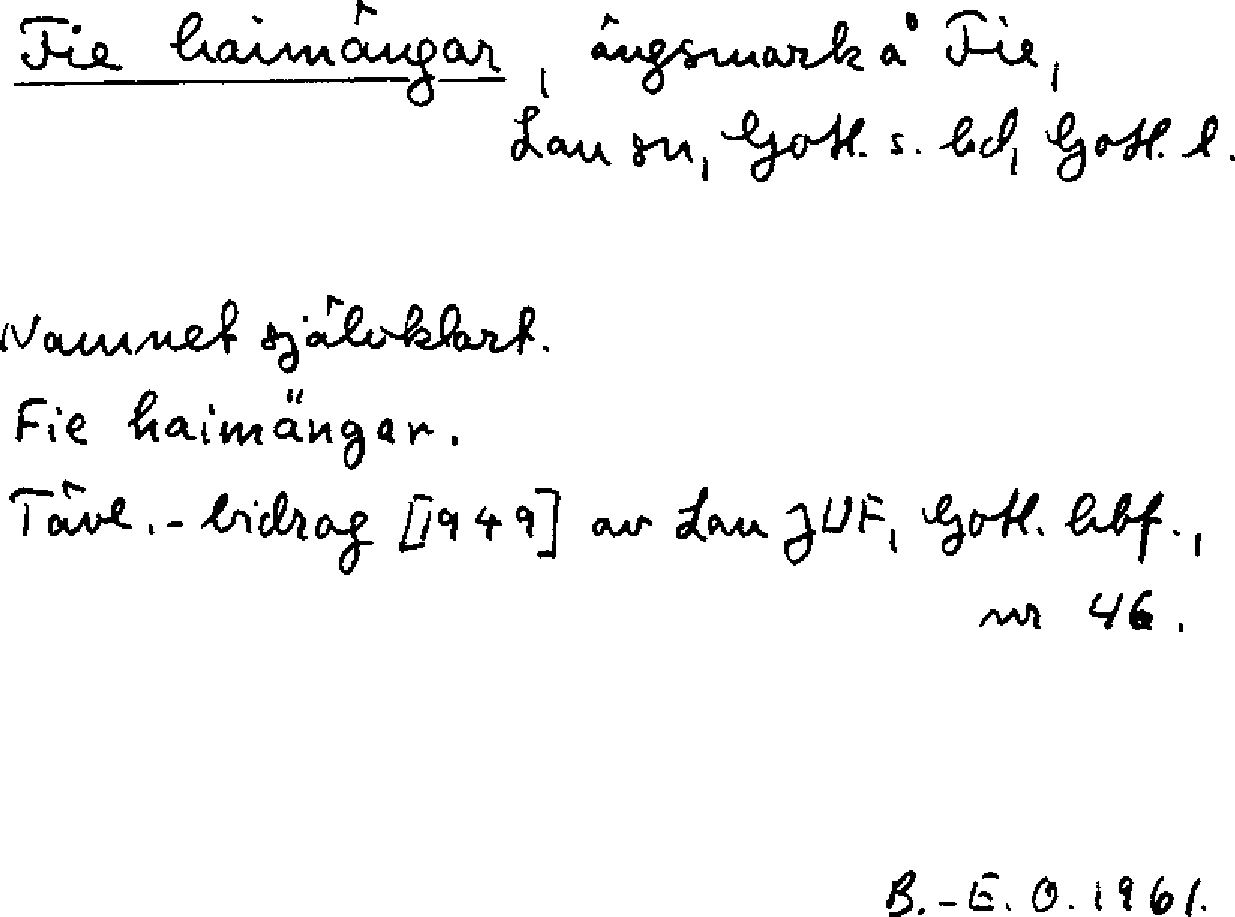 Fie haimängar, ängsmark å Fie,
Lau sn, Gotl. s. hd, Gotl. l.
Namnet självklart.
Fie haimängar.
Tävl.-bidrag [1949] av Lau JUF, Gotl. hbf.,
nr 46.
B.-E. O. 1961.